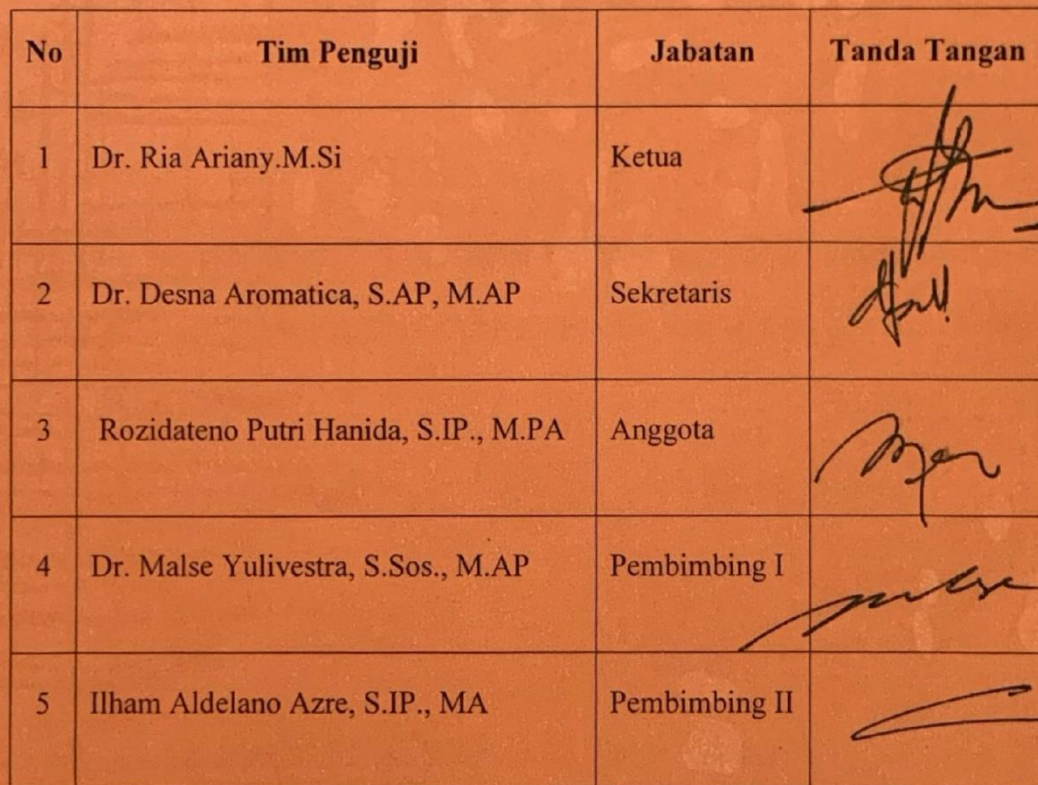 No Tim Penguji Jabatan Tanda Tangan
1 Dr. Ria Ariany.M.Si Ketua
2 Dr. Desna Aromatica, S.AP, M.AP Sekretaris
3 Rozidateno Putri Hanida, S.IP., M.PA Anggota
4 Dr. Malse Yulivestra, S.Sos., M.AP Pembimbing I
5 Ilham Aldelano Azre, S.IP., MA Pembimbing II